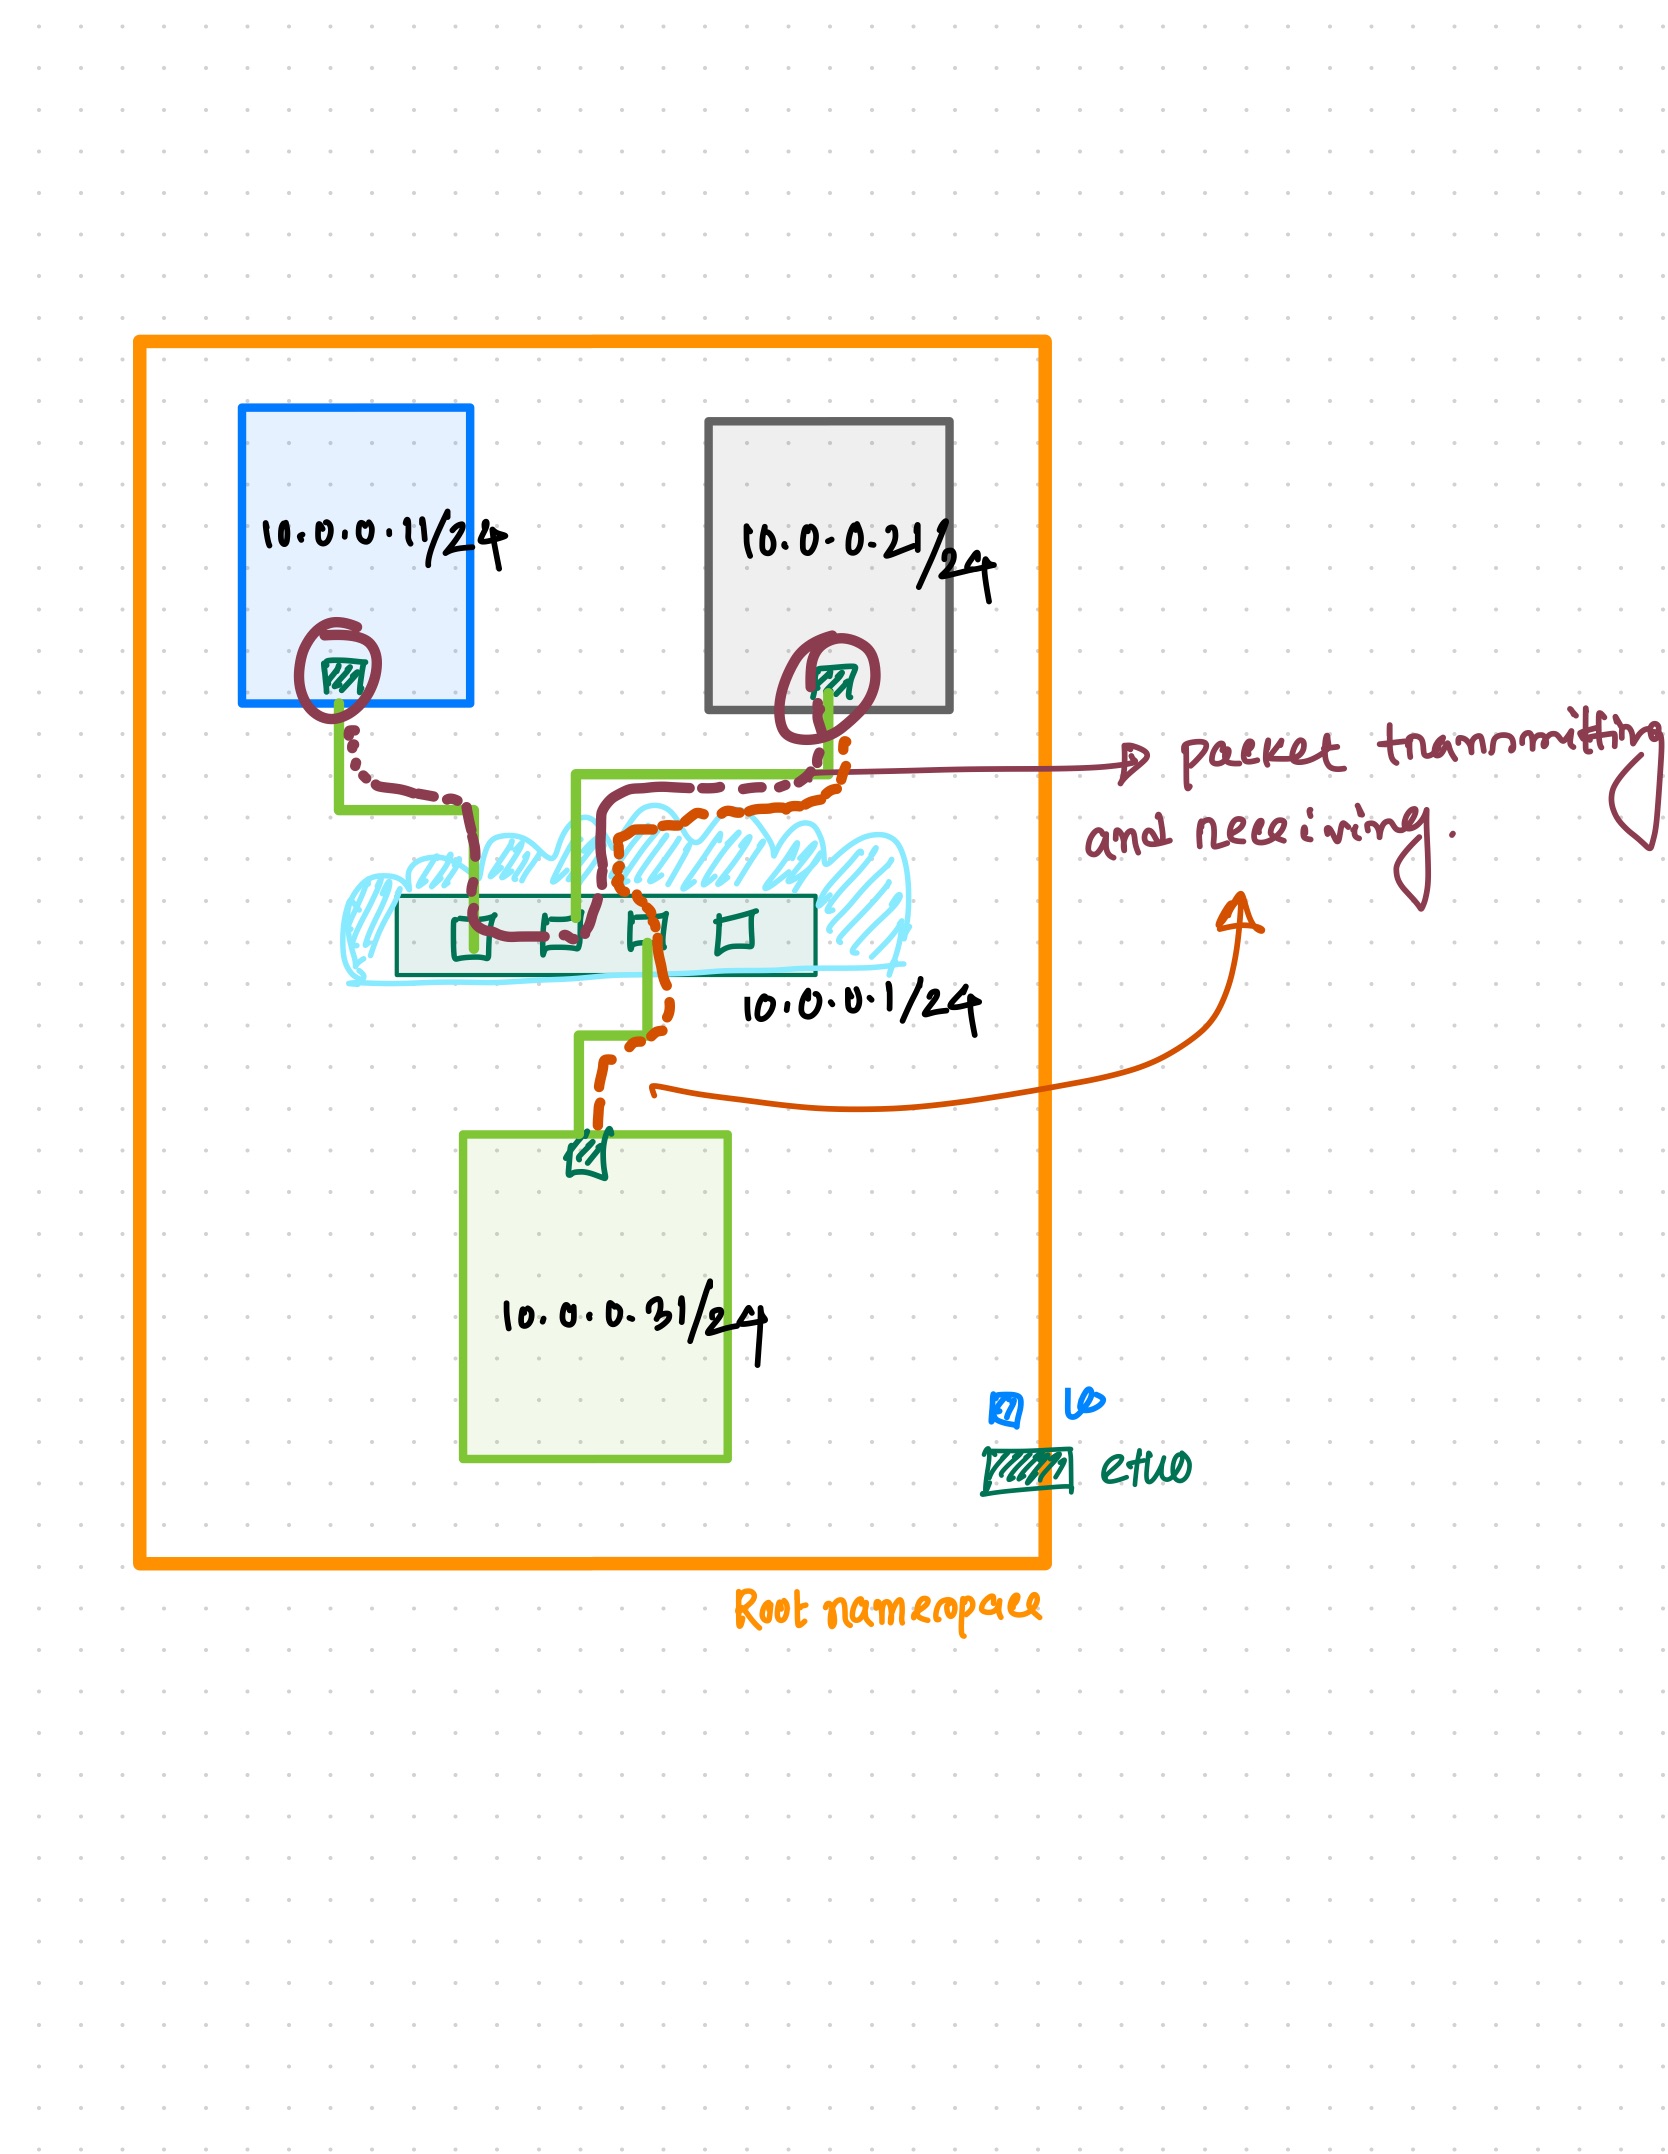 10.0.0.11/24
10.0.0.21/24
packet transmitting
and receiving.
10.0.0.1/24
10.0.0.31/24
lo
eth0
Root namespace